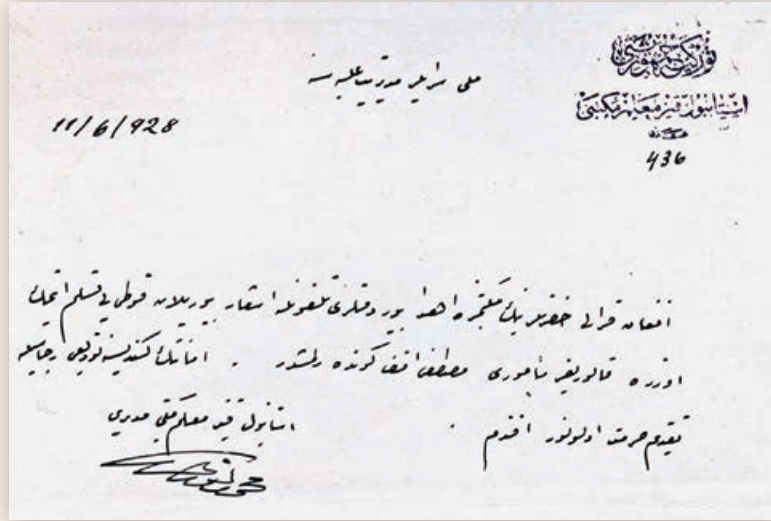 تورکیه جمهوریتی
استانبول قیز معلم مکتبی
عدد
436
ملی سرایلر مدیریت علیه سنه
11/6/928
افغان قرالی حضرتلرینك مکتبمزه اهدا بیوردقلری تلفونله اشعار بیوریلان قوطی یی تسلم ایتمك
اوزره قالوریفر مأموری مصطفی افندی کوندرلمشدر . امانتك کندیسنه تودیعی رجاسیله
تقدیم حرمت اولونور افندم .
استانبول قیز معلم مکتبی مدیری